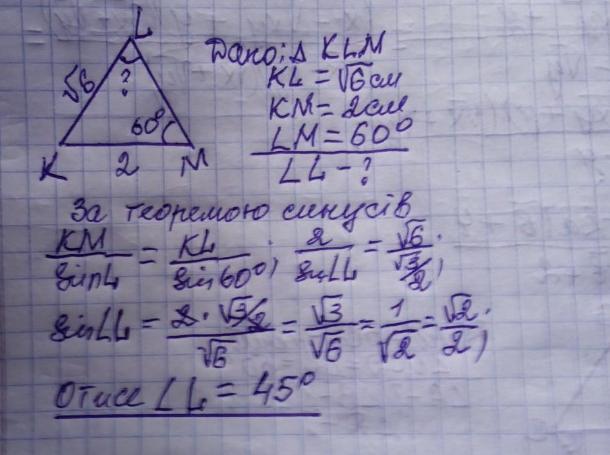 L
√6
?
60°
K 2 M
Дано: Δ KLM
KL = √6 см
KM = 2 см
∠M = 60°
∠L - ?
За теоремою синусів
KM/sin L = KL/sin 60°; 2/sin∠L = √6/(√3/2);
sin∠L = (2 · √3/2)/√6 = √3/√6 = 1/√2 = √2/2;
Отже ∠L = 45°